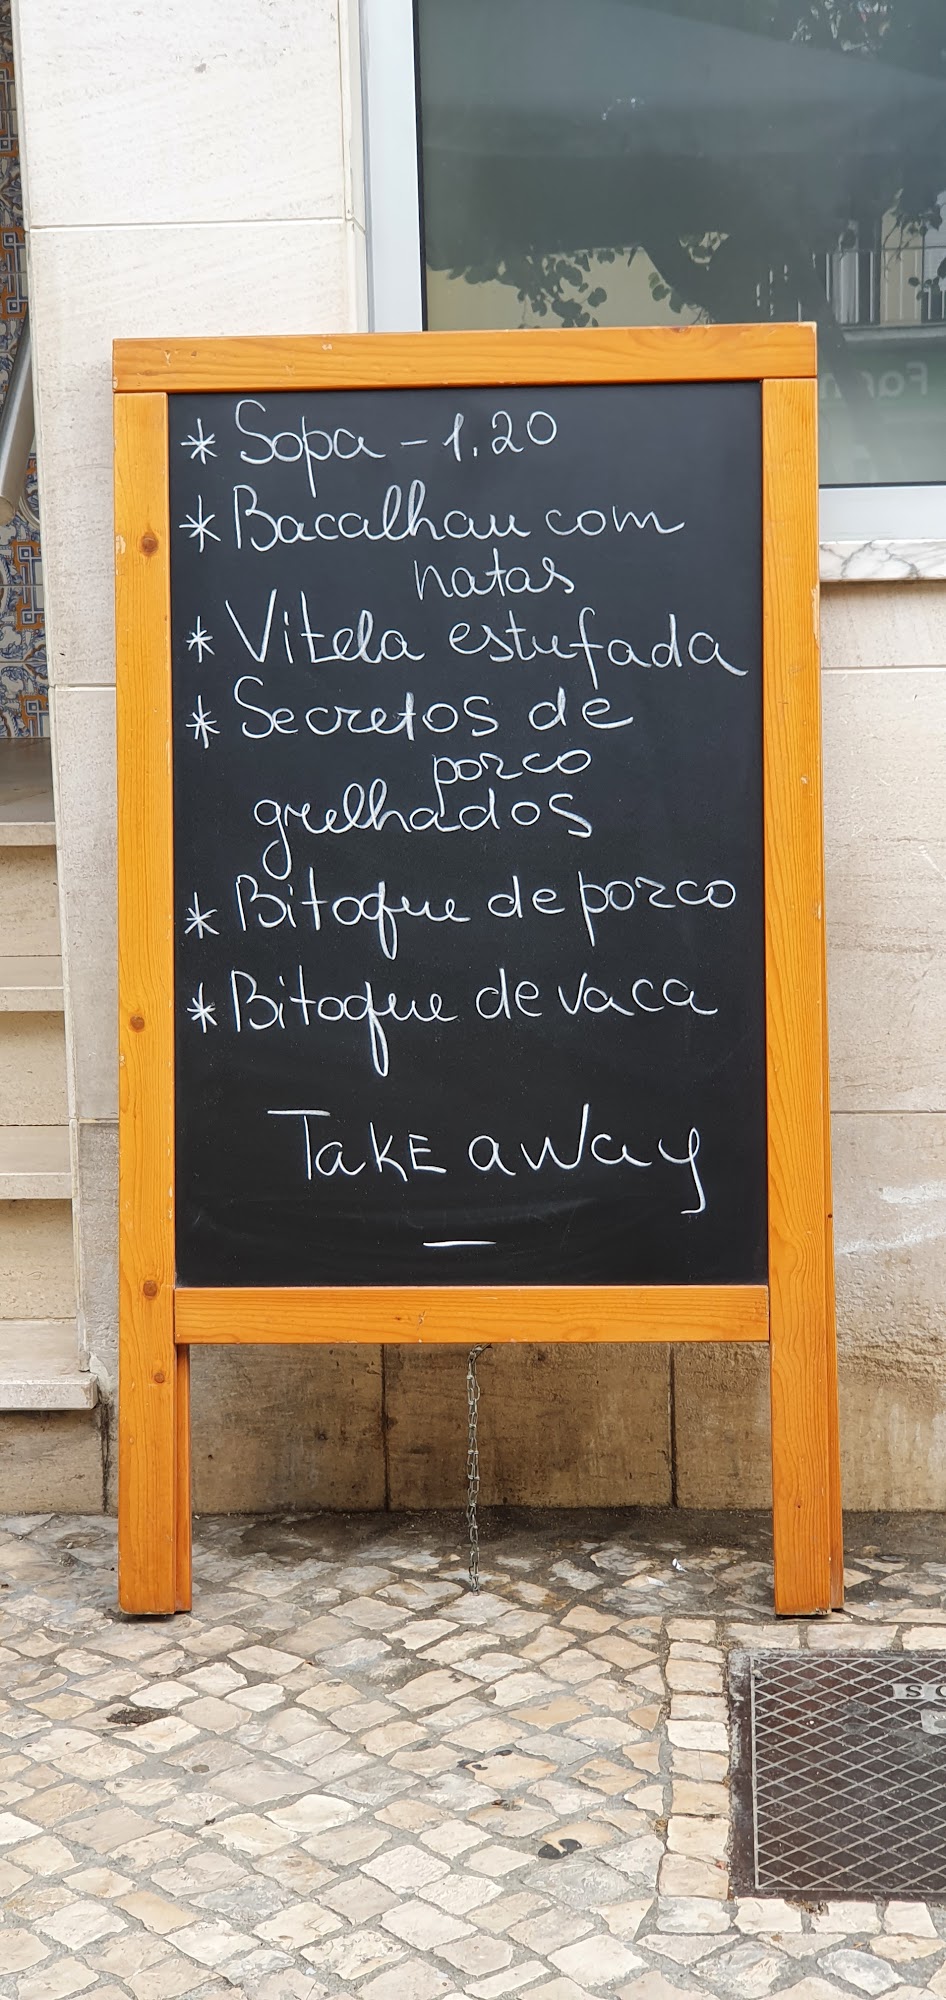 * Sopa - 1.20
* Bacalhau com
natas
* Vitela estufada
* Secretos de
porco
grelhados
* Bitoque de porco
* Bitoque de vaca
Take away